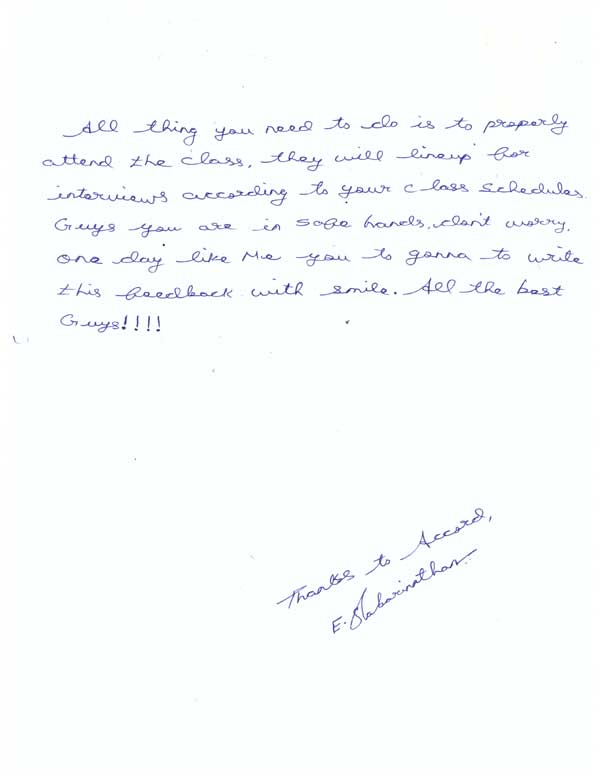 All thing you need to do is to properly
attend the class, they will lineup for
interviews according to your class schedules.
Guys you are in safe hands, don't worry,
one day like me you to gonna to write
this feedback with smile. All the best
Guys!!!!
Thanks to Accord,
E. Sabarinathan